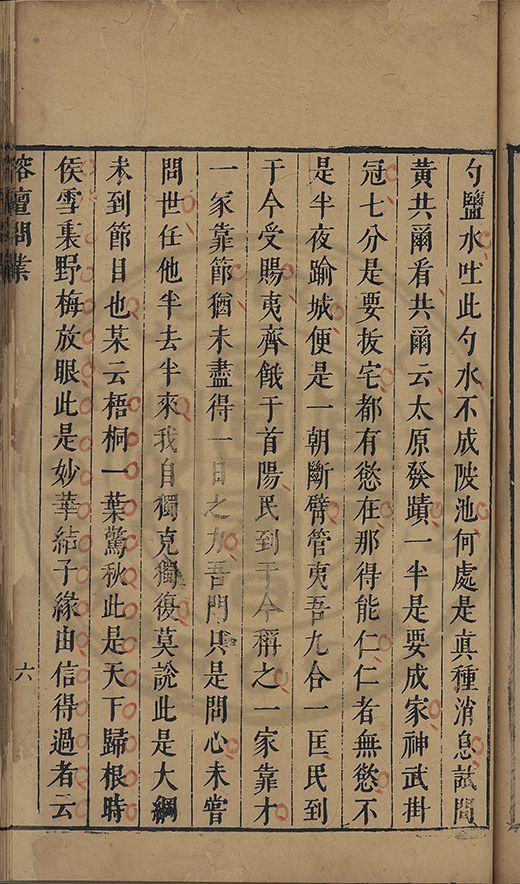 勺鹽水吐此勺水不成陂池何處是真種消息試問
黃共爾看共爾云太原發蹟一半是要成家神武掛
冠七分是要拔宅都有慾在那得能仁仁者無慾不
是半夜踰城便是一朝斷臂管夷吾九合一匡民到
于今受賜夷齊餓于首陽民到于今稱之一家靠才
一家靠節猶未盡得一日之力吾門只是問心未嘗
問世任他半去半來我自獨克獨復莫說此是大綱
未到節目也某云梧桐一葉驚秋此是天下歸根時
侯雪裏野梅放眼此是妙華結子緣由信得過者云
榕壇問業
六